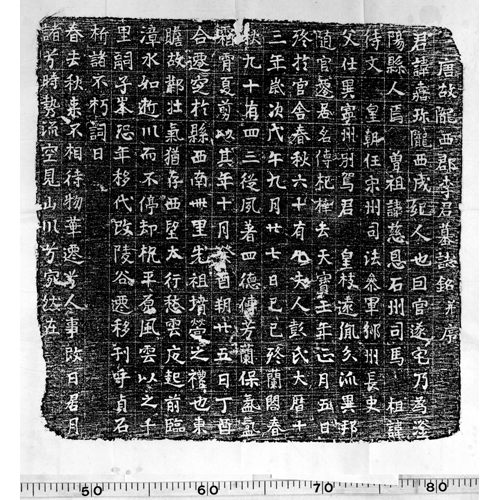 唐故隴西郡李君墓誌銘并序
君諱珎隴西成紀人也曰官遂宅乃為滏
陽縣人焉 曾祖諱慈恩石州司馬 祖諱
待文 皇朝任宋州司法叅軍州長史
父仕異寧州別駕君 皇枝遠胤久流異邦
隨官名停杞梓去天寶年正月五日
終於官舍春秋六十有夫人彭氏大曆十
三年歲次戊午九月廿七日己巳終蘭閤春
秋九十有四三從夙著四德傳芳蘭保氣氳
夏剪以其年十月癸酉朔廿五日丁酉
合遷窆於縣西南卌里先祖墳塋之禮也東
瞻故鄴壯氣猶存西望太行愁雲起前臨
漳水如逝川而不停却枕平原風雲以之千
里嗣子峯恐年移代改陵谷遷移刊乎貞石
斫諸不朽詞曰
春去秋来不相待物華遷兮人事改日居月
諸兮時勢流空見山川兮宛然在
50 60 70 80